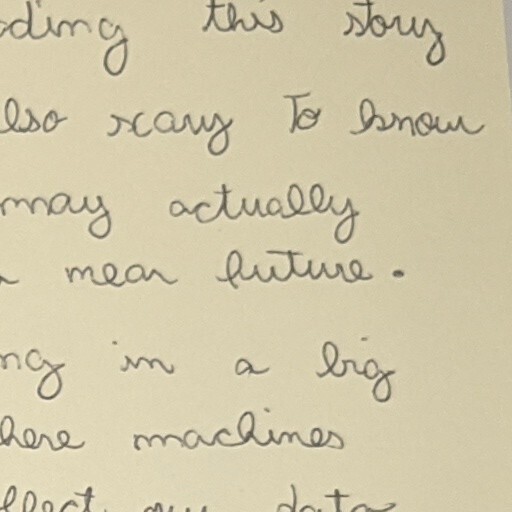 ding this story
lso scary to know
may actually
near future.
ng in a big
here machines
llect our data